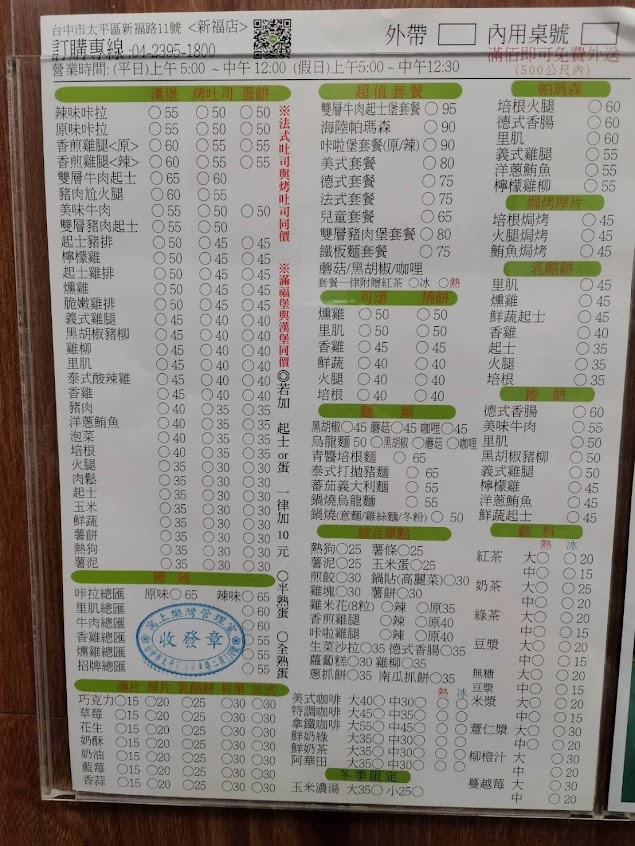 台中市太平區新福路11號 <新福店>
訂購專線:04-2395-1800
外帶 內用桌號
滿佰即可免費外送
(500公尺內)
營業時間: (平日)上午 5:00 ~ 中午 12:00 (假日)上午5:00 ~ 中午12:30
漢堡 烤吐司 蛋餅
辣味咔拉 ○ 55 ○ 50 ○ 50
原味咔拉 ○ 55 ○ 50 ○ 50
香煎雞腿<原> ○ 60 ○ 55 ○ 55
香煎雞腿<辣> ○ 60 ○ 55 ○ 55
雙層牛肉起士 ○ 65 ○ 60
豬肉尬火腿 ○ 60 ○ 55
美味牛肉 ○ 55 ○ 50 ○ 50
雙層豬肉起士 ○ 55 ○ 50
起士豬排 ○ 50 ○ 45 ○ 45
檸檬雞 ○ 50 ○ 45 ○ 45
起士雞排 ○ 50 ○ 45 ○ 45
燻雞 ○ 50 ○ 45 ○ 45
脆嫩雞排 ○ 50 ○ 45 ○ 45
義式雞腿 ○ 45 ○ 40 ○ 40
黑胡椒豬柳 ○ 45 ○ 40 ○ 40
雞柳 ○ 45 ○ 40 ○ 40
里肌 ○ 45 ○ 40 ○ 40
泰式酸辣雞 ○ 45 ○ 40 ○ 40
香雞 ○ 45 ○ 40 ○ 40
豬肉 ○ 40 ○ 35 ○ 35
洋蔥鮪魚 ○ 40 ○ 35 ○ 35
泡菜 ○ 40 ○ 35 ○ 35
培根 ○ 40 ○ 35 ○ 35
火腿 ○ 35 ○ 30 ○ 30
肉鬆 ○ 35 ○ 30 ○ 30
起士 ○ 35 ○ 30 ○ 30
玉米 ○ 35 ○ 30 ○ 30
鮮蔬 ○ 35 ○ 30 ○ 30
薯餅 ○ 35 ○ 30 ○ 30
熱狗 ○ 35 ○ 30 ○ 30
薯泥 ○ 35 ○ 30 ○ 30
※法式吐司與烤吐司同價
※滿福堡與漢堡同價
◎若加 起士 or 蛋 一律加 10 元
○半熟蛋 ○全熟蛋
總匯
咔拉總匯 原味○ 65 辣味○ 65
里肌總匯 ○ 60
牛肉總匯 ○ 60
香雞總匯 ○ 55
燻雞總匯 ○ 55
招牌總匯 ○ 55
寓上樂灣管理室
收發章
薄片 厚片 乳酪餅 貝果 法式
巧克力○15 ○20 ○25 ○30 ○30
草莓 ○15 ○20 ○25 ○30 ○30
花生 ○15 ○20 ○25 ○30 ○30
奶酥 ○15 ○20 ○25 ○30 ○30
奶油 ○15 ○20 ○25 ○30 ○30
藍莓 ○15 ○20 ○25 ○30 ○30
香蒜 ○15 ○20 ○25 ○30 ○30
超值套餐
雙層牛肉起士堡套餐 ○ 95
海陸帕瑪森 ○ 90
咔啦堡套餐(原/辣) ○ 90
美式套餐 ○ 80
德式套餐 ○ 75
法式套餐 ○ 75
兒童套餐 ○ 65
雙層豬肉堡套餐 ○ 80
鐵板麵套餐 ○ 75
蘑菇/黑胡椒/咖哩
套餐一律附贈紅茶 ○冰 ○熱
可頌 燒餅
燻雞 ○ 50 ○ 50
里肌 ○ 50 ○ 50
香雞 ○ 45 ○ 45
鮮蔬 ○ 40 ○ 40
火腿 ○ 40 ○ 40
培根 ○ 40 ○ 40
麵類
黑胡椒○45 蘑菇○45 咖哩○45
烏龍麵 50 ○黑胡椒 ○蘑菇 ○咖哩
青醬培根麵 ○ 60
泰式打拋豬麵 ○ 65
蕃茄義大利麵 ○ 55
鍋燒烏龍麵 ○ 55
鍋燒(意麵/雞絲麵/冬粉) ○ 50
綜合單點
熱狗○25 薯條○25
薯泥○25 玉米蛋○25
煎餃○30 鍋貼(高麗菜)○30
雞塊○30 薯餅○30
雞米花(8粒) ○辣 ○原35
香煎雞腿 ○辣 ○原40
咔啦雞腿 ○辣 ○原40
生菜沙拉○35 德式香腸○35
蘿蔔糕○30 雞柳○35
蔥抓餅○30 南瓜抓餅○35
熱 冰
美式咖啡 大40○ 中30○ ○ ○
特調咖啡 大45○ 中35○ ○ ○
拿鐵咖啡 大55○ 中45○ ○ ○
鮮奶綠 大35○ 中30○ ○ ○
鮮奶茶 大35○ 中30○ ○ ○
阿華田 大35○ 中30○ ○ ○
冬季限定
玉米濃湯 大35○ 小25○
帕瑪森
培根火腿 ○ 60
德式香腸 ○ 60
里肌 ○ 60
義式雞腿 ○ 55
洋蔥鮪魚 ○ 55
檸檬雞柳 ○ 55
焗烤厚片
培根焗烤 ○ 45
火腿焗烤 ○ 45
鮪魚焗烤 ○ 45
乳酪餅
里肌 ○ 45
燻雞 ○ 45
鮮蔬起士 ○ 45
香雞 ○ 40
起士 ○ 35
火腿 ○ 35
培根 ○ 35
捲餅
德式香腸 ○ 60
美味牛肉 ○ 55
里肌 ○ 50
黑胡椒豬柳 ○ 50
義式雞腿 ○ 50
檸檬雞 ○ 45
洋蔥鮪魚 ○ 45
鮮蔬起士 ○ 45
飲料
熱 冰
紅茶 大○ ○ 20
中○ ○ 15
奶茶 大○ ○ 25
中○ ○ 20
綠茶 大○ ○ 20
中○ ○ 15
豆漿 大○ ○ 20
中○ ○ 15
無糖豆漿 大○ ○ 20
中○ ○ 15
米漿 大○ ○ 25
中○ ○ 20
薏仁漿 大○ ○ 25
中○ ○ 20
柳橙汁 大 ○ 30
中 ○ 20
蔓越莓 大 ○ 30
中 ○ 20